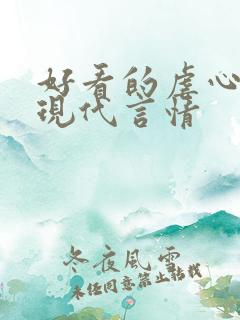 好看的虐心
现代言情
冬夜风雪
未经同意禁止转载